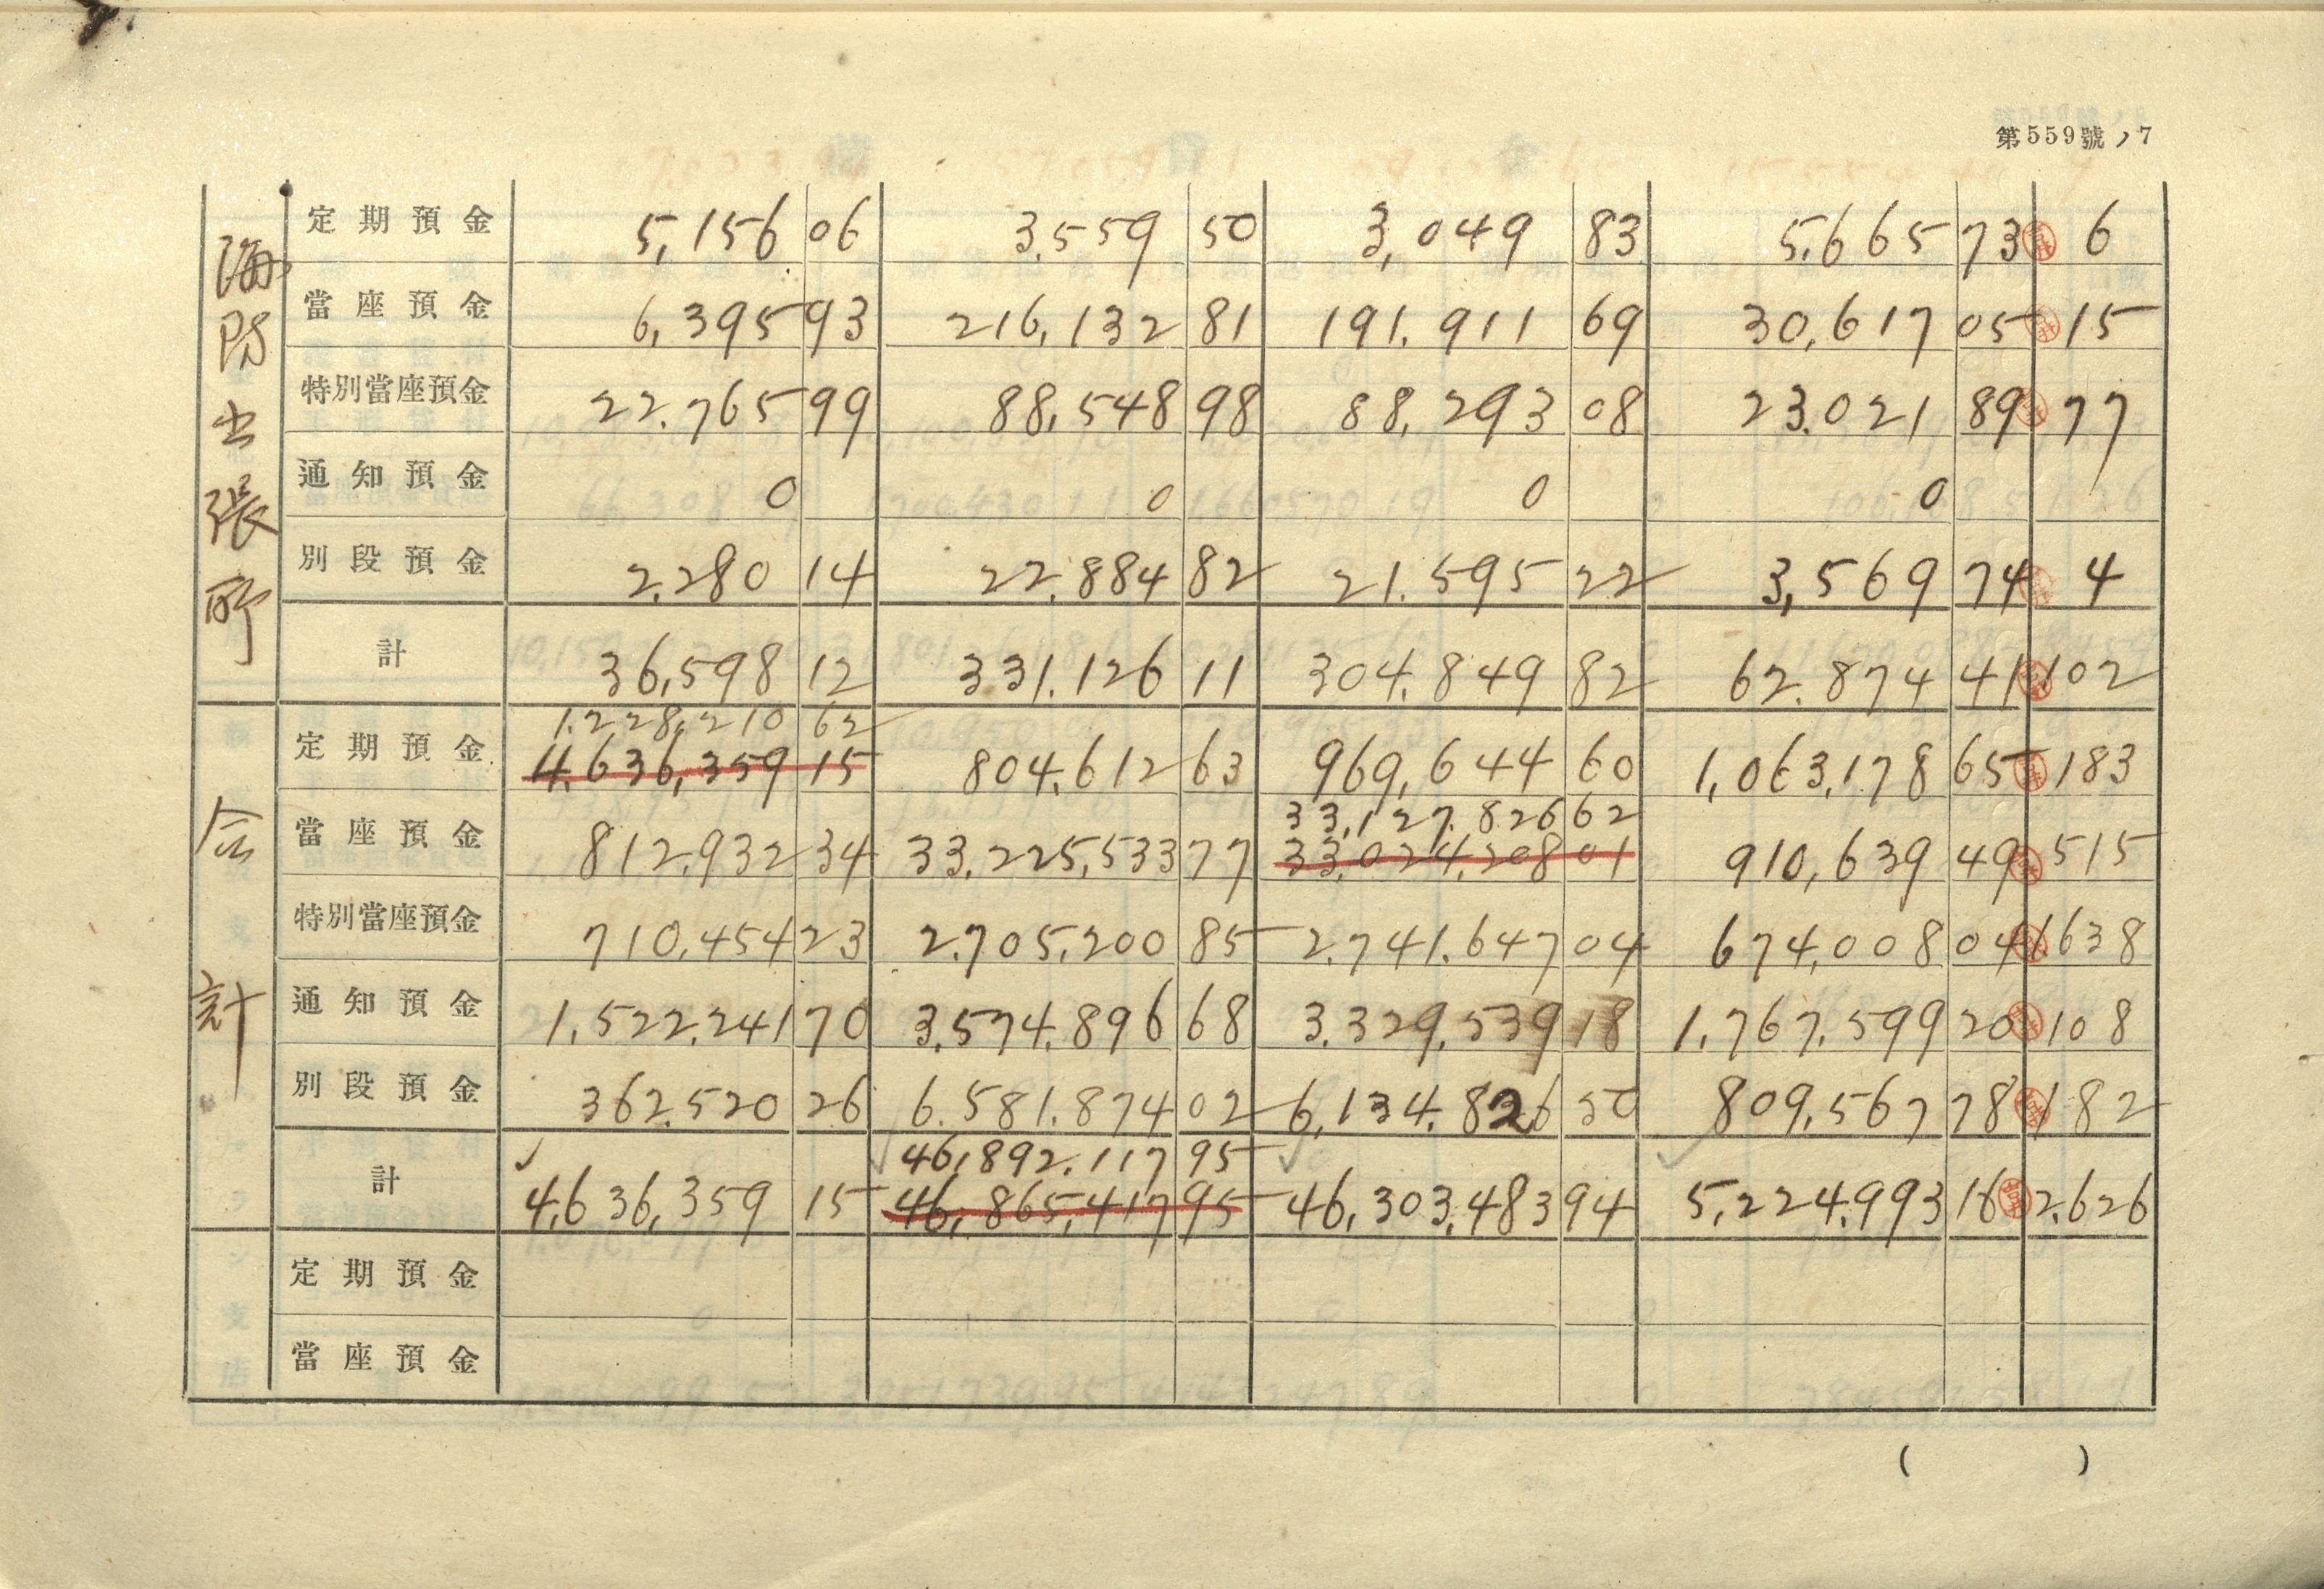 第559號ノ7
海防出張所
定期預金 5,156 06 3,559 50 3,049 83 5,665 73 6
當座預金 6,395 93 216,132 81 191,911 69 30,617 05 15
特別當座預金 22,765 99 88,548 98 88,293 08 23,021 89 77
通知預金 0 0 0 0
別段預金 2,280 14 22,884 82 21,595 22 3,569 74 4
計 36,598 12 331,126 11 304,849 82 62,874 41 102
合計
1,228,210 62
定期預金 4,636,359 15 804,612 63 969,644 60 1,063,178 65 183
33,127,826 62
當座預金 812,932 34 33,225,533 77 33,024,208 01 910,639 49 515
特別當座預金 710,454 23 2,705,200 85 2,741,647 04 674,008 04 1,638
通知預金 1,522,241 70 3,574,896 68 3,329,539 18 1,767,599 20 108
別段預金 362,520 26 6,581,874 02 6,134,826 50 809,567 78 182
46,892,117 95
計 4,636,359 15 46,865,417 95 46,303,483 94 5,224,993 16 2,626
定期預金
當座預金
( )